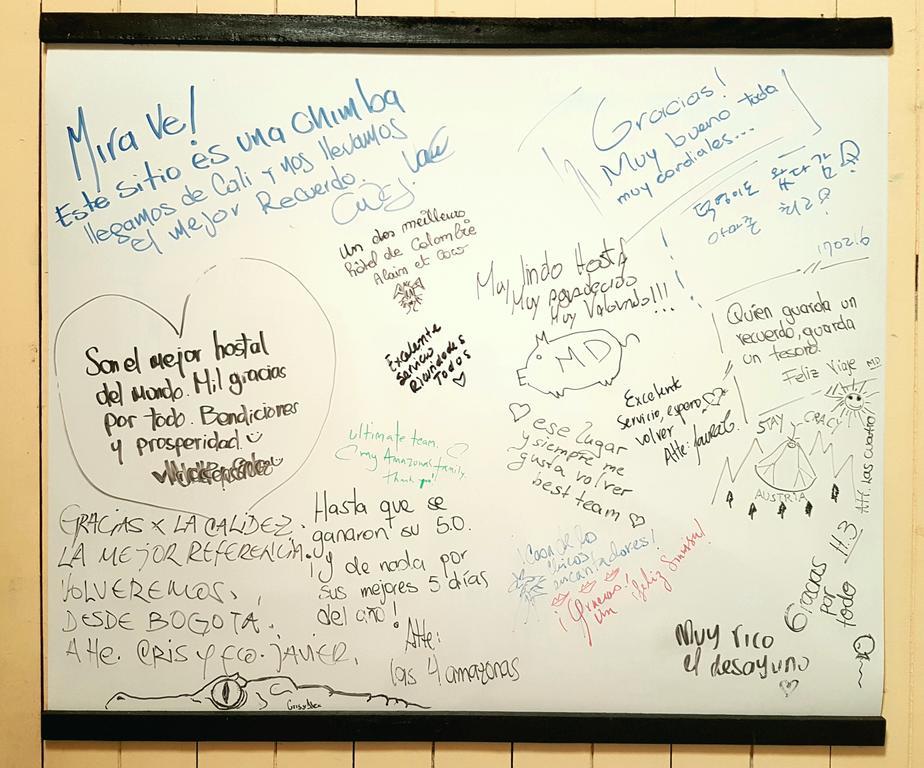 Mira Ve!
Este sitio es una chimba
llegamos de Cali y nos llevamos
el mejor Recuerdo.
Gracias!
Muy bueno todo
muy cordiales...
170216
Un des meilleurs
hôtel de Colombie
Alain et Coco
Muy lindo Hostal
Muy agradecido
Muy Volvendo!!!
MD
Quien guarda un
recuerdo, guarda
un tesoro.
Feliz Viaje MD
Son el mejor hostal
del mundo. Mil gracias
por todo. Bendiciones
y prosperidad.
Excelente
servicio
Ricundodes
Todos
Excelente
Servicio, espero
volver
Atte: Laura G.
ese lugar
y siempre me
gusta volver
best team
STAY CRAZY
AUSTRIA
Att. Las cuatro
ultimate team.
my Amazonas family.
Thank you!
GRACIAS X LA CALIDEZ.
LA MEJOR REFERENCIA.
VOLVEREMOS.
DESDE BOGOTA.
Atte. CRIS Y FCO. JAVIER.
Hasta que se
ganaron su 5.0.
¡y de nada por
sus mejores 5 días
del año!
Atte:
las 4 amazonas
encantadores!
¡Gracias!
un ¡feliz
Muy rico
el desayuno
Gracias
por
todo
H.3